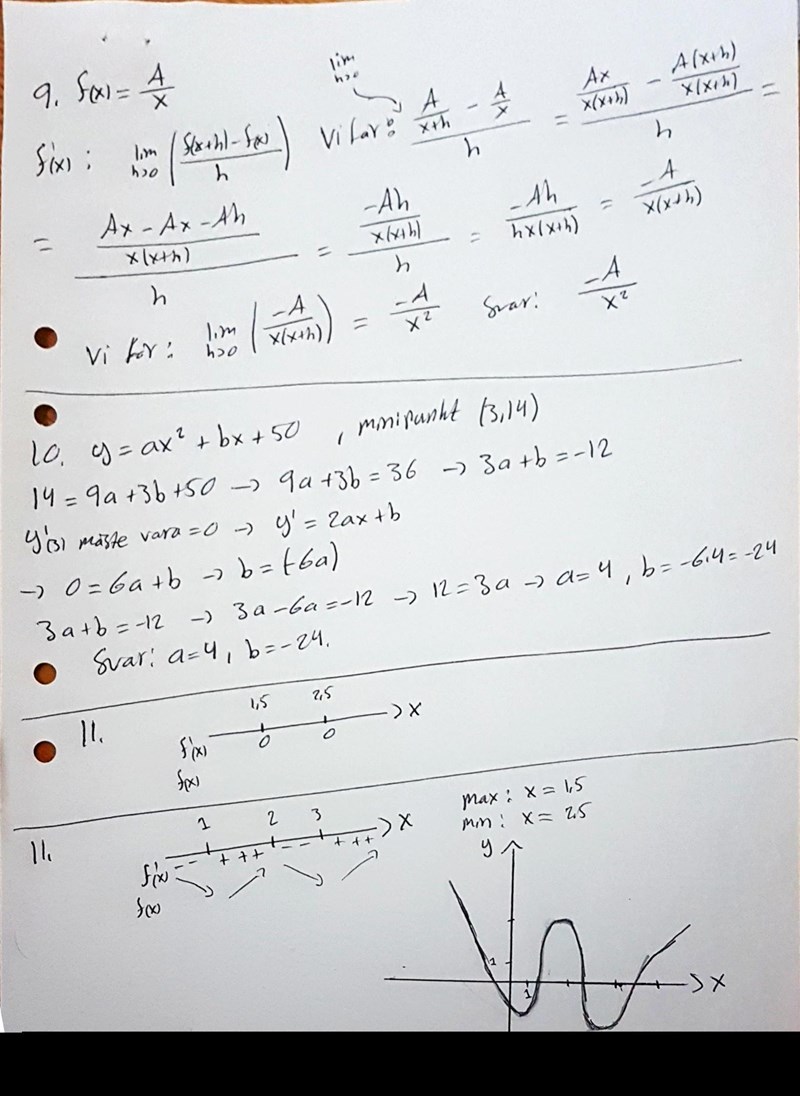 9. f(x) = A/x
f'(x): lim h→0 ((f(x+h) - f(x))/h) Vi får: lim h→0 (A/(x+h) - A/x)/h = (Ax/(x(x+h)) - A(x+h)/(x(x+h)))/h =
= ((Ax - Ax - Ah)/(x(x+h)))/h = (-Ah/(x(x+h)))/h = -Ah/(hx(x+h)) = -A/(x(x+h))
Vi får: lim h→0 (-A/(x(x+h))) = -A/x² Svar: -A/x²
10. y = ax² + bx + 50 , minipunkt (3,14)
14 = 9a + 3b + 50 → 9a + 3b = 36 → 3a + b = -12
y'(3) måste vara = 0 → y' = 2ax + b
→ 0 = 6a + b → b = (-6a)
3a + b = -12 → 3a - 6a = -12 → 12 = 3a → a = 4 , b = -6·4 = -24
Svar: a = 4 , b = -24.
11.
1,5 2,5
f'(x) 0 0 → x
f(x)
11.
1 2 3 → x
f'(x) -- +++ -- +++
f(x) ↘ ↗ ↘ ↗
max: x = 1,5
min: x = 2,5
y
1
1
x